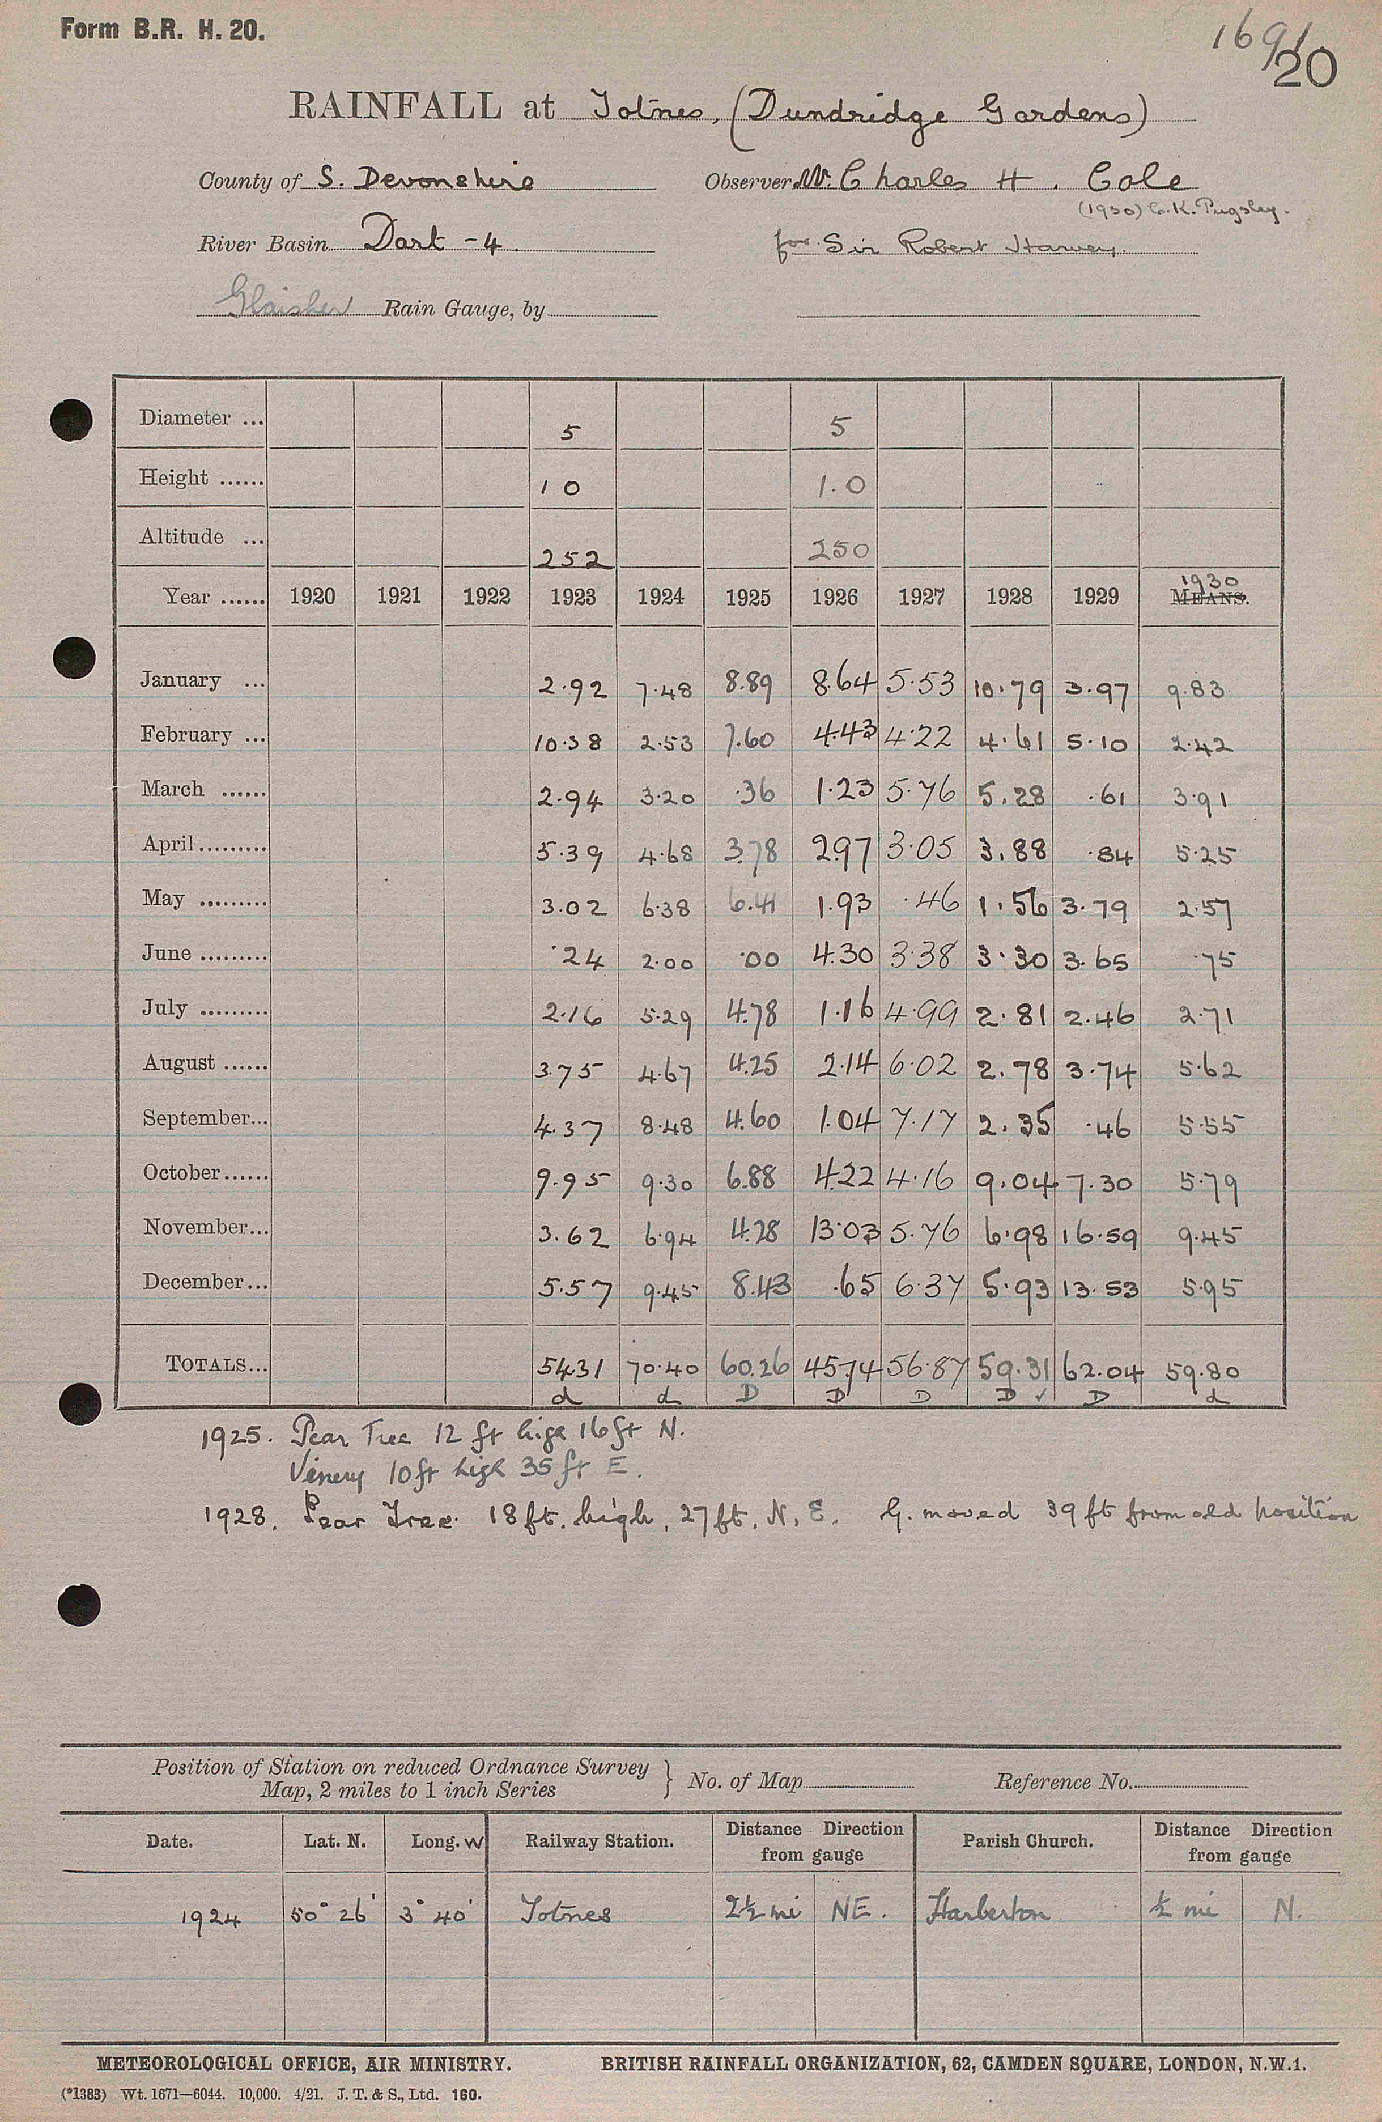 Form B.R. H. 20.
169/
20
RAINFALL at Totnes, (Dundridge Gardens)
County of S. Devonshire Observer Mr. Charles H. Cole
(1930) C.K. Pugsley.
River Basin Dart - 4 for Sir Robert Harvey.
Glaisher Rain Gauge, by
Diameter ... 5 5
Height ...... 1 0 1.0
Altitude ... 252 250
1930
Year ...... 1920 1921 1922 1923 1924 1925 1926 1927 1928 1929 MEANS.
January ... 2.92 7.48 8.89 8.64 5.53 10.79 3.97 9.83
February ... 10.38 2.53 7.60 4.43 4.22 4.61 5.10 2.42
March ...... 2.94 3.20 .36 1.23 5.76 5.28 .61 3.91
April ......... 5.39 4.68 3.78 2.97 3.05 3.88 .84 5.25
May ......... 3.02 6.38 6.41 1.93 .46 1.56 3.79 2.57
June ......... .24 2.00 .00 4.30 3.38 3.30 3.65 .75
July ......... 2.16 5.29 4.78 1.16 4.99 2.81 2.46 2.71
August ...... 3.75 4.67 4.25 2.14 6.02 2.78 3.74 5.62
September... 4.37 8.48 4.60 1.04 7.17 2.35 .46 5.55
October...... 9.95 9.30 6.88 4.22 4.16 9.04 7.30 5.79
November... 3.62 6.94 4.28 13.03 5.76 6.98 16.59 9.45
December... 5.57 9.45 8.43 .65 6.37 5.93 13.53 5.95
TOTALS... 54.31 70.40 60.26 45.74 56.87 59.31 62.04 59.80
d d D D D D ✓ D d
1925. Pear Tree 12 ft high 16 ft N.
Vinery 10 ft high 35 ft E.
1928. Pear Tree 18 ft. high, 27 ft. N. E. G. moved 39 ft from old position
Position of Station on reduced Ordnance Survey
Map, 2 miles to 1 inch Series } No. of Map Reference No.
Date. Lat. N. Long. W Railway Station. Distance Direction from gauge Parish Church. Distance Direction from gauge
1924 50° 26' 3° 40' Totnes 2½ mi NE. Harberton ½ mi N.
METEOROLOGICAL OFFICE, AIR MINISTRY. BRITISH RAINFALL ORGANIZATION, 62, CAMDEN SQUARE, LONDON, N.W.1.
(*1383) Wt. 1671—6044. 10,000. 4/21. J. T. & S., Ltd. 160.